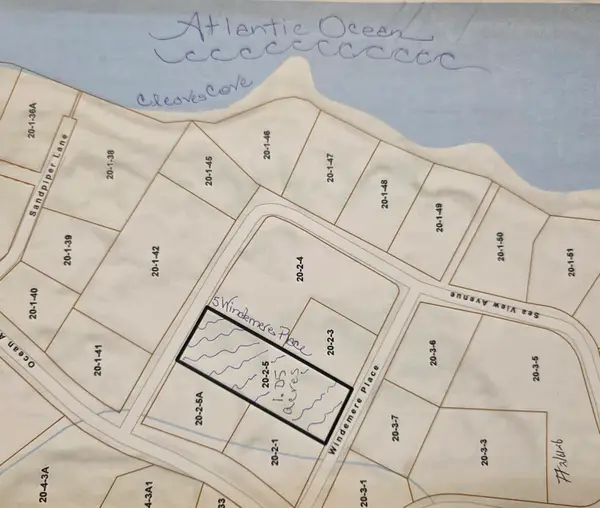 Atlantic Ocean
Cleaves Cove
20-1-36A
Sandpiper Lane
20-1-38
20-1-45
20-1-46
20-1-47
20-1-48
20-1-49
20-1-50
20-1-51
20-1-39
20-1-42
20-2-4
Sea View Avenue
20-1-40
Ocean A
20-1-41
5 Windemere Place
20-2-3
20-3-6
20-3-5
20-2-5
1.05
acres
20-2-5A
Windemere Place
20-2-1
20-3-7
20-3-3
20-4-3A
4-3A1
33
20-3-1